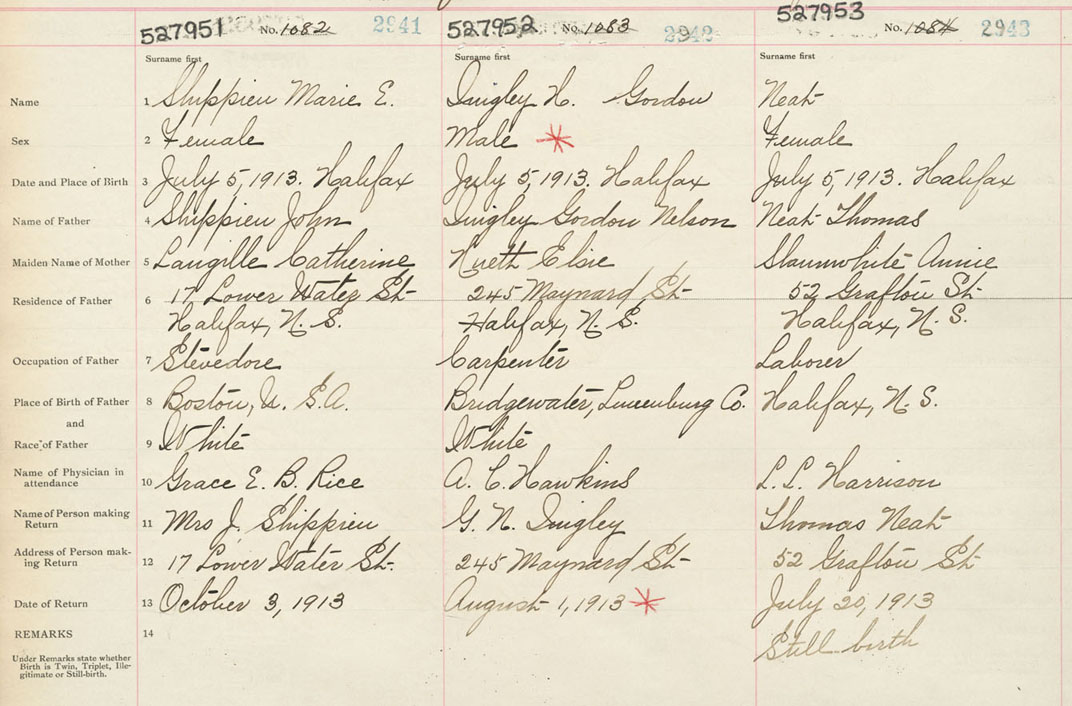 527951 No. 1082 2941
527952 No. 1083 2942
527953 No. 1084 2943
Surname first Surname first Surname first
Name 1 Shippieu Marie E. Quigley H. Gordon Neat
Sex 2 Female Male Female
Date and Place of Birth 3 July 5, 1913. Halifax July 5, 1913. Halifax July 5, 1913. Halifax
Name of Father 4 Shippieu John Quigley Gordon Nelson Neat Thomas
Maiden Name of Mother 5 Langille Catherine Elsie Slaunwhite Annie
Residence of Father 6 17 Lower Water St. 245 Maynard St. 52 Grafton St.
Halifax, N. S. Halifax, N. S. Halifax, N. S.
Occupation of Father 7 Stevedore Carpenter Laborer
Place of Birth of Father 8 Boston, U. S. A. Bridgewater, Lunenburg Co. Halifax, N. S.
and
Race of Father 9 White White
Name of Physician in
attendance 10 Grace E. B. Rice A. C. Hawkins L. L. Harrison
Name of Person making
Return 11 Mrs J. Shippieu G. N. Quigley Thomas Neat
Address of Person mak-
ing Return 12 17 Lower Water St. 245 Maynard St. 52 Grafton St.
Date of Return 13 October 3, 1913 August 1, 1913 July 20, 1913
REMARKS 14 Still birth
Under Remarks state whether
Birth is Twin, Triplet, Ille-
gitimate or Still-birth.